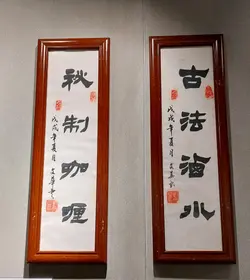 古法滷水
戊戌年夏月
秘制咖喱
戊戌年夏月